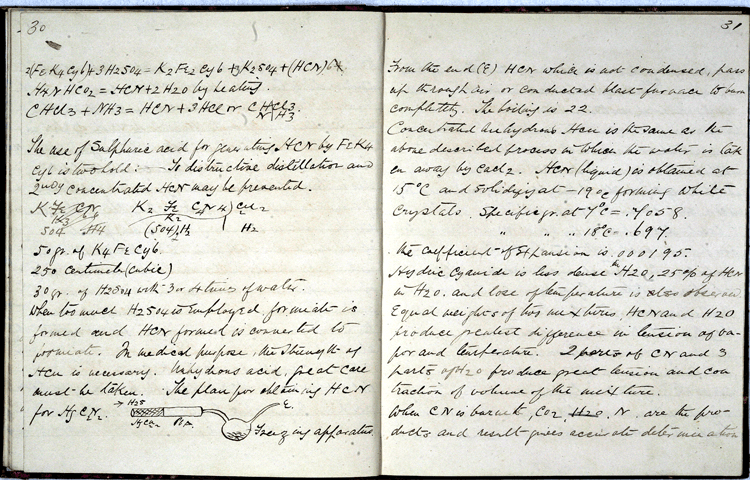 30
2(FeK4Cy6)+3H2SO4 = K2Fe2Cy6 + 3K2SO4 + (HCN)6
H4NHCO2 = HCN + 2H2O by heating.
CHCl3 + NH3 = HCN + 3HCl or CHCl3.
NH3
The use of Sulphuric acid for generating HCN by FeK4
Cy6 is two fold: To distructive distillation and
2ndly concentrated HCN may be prevented.
K Fe CN K2 Fe CN4) CN2
K2
SO4 H4 (SO4)2H2 H2
50 gr. of K4FeCy6.
250 Centimets (Cubic)
30 gr. of H2SO4 with 3 or 4 times of water.
When too much H2SO4 is employed, formiate is
formed and HCN formed is converted to
formiate. In medical purpose, the Strength of
HCN is necessary. Anhydrous acid, great care
must be taken. The plan for obtaining HCN
for HgCN2. → H2S E.
HgCN2 Freezing apparatus
31
From the end (E) HCN which is not condensed, pass
up through air or conducted blast-furnace to burn
completely. The boiling is 22.
Concentrated anhydrous HCN is the same as the
above described process in which the water is tak
en away by CaCl2. HCN (liquid) as obtained at
15°C and solidifys at -19°C forming white
Crystals. Specific gr. at 7°C = .7058.
" " " 18°C = .697.
The coefficient of Expansion is .000195.
Hydric Cyanide is less dense th H2O, 25% of HCN
in H2O. and lose of temperature is also observed
Equal weights of two mixtures, HCN and H2O
produce greatest difference in tension of va-
por and temperature. 2 parts of CN and 3
parts of H2O produce great tension and con
traction of volume of the mixture.
When CN is burnt, CO2, H2O, N, are the pro-
ducts and result gives accurate determination